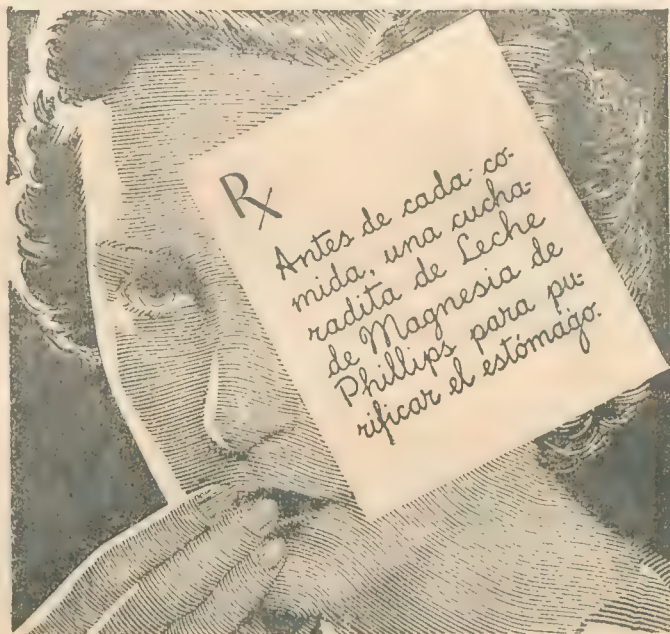 Rx
Antes de cada co-
mida, una cucha-
radita de Leche
de Magnesia de
Phillips para pu-
rificar el estómago.